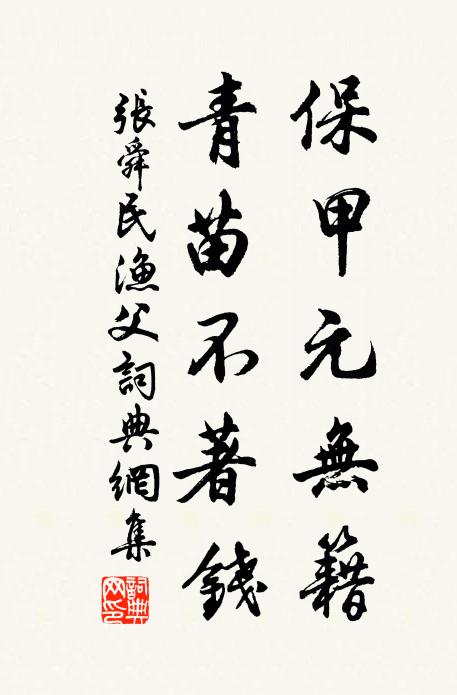 保甲元無籍
青苗不著錢
張舜民漁父詞典網集
詞典網印